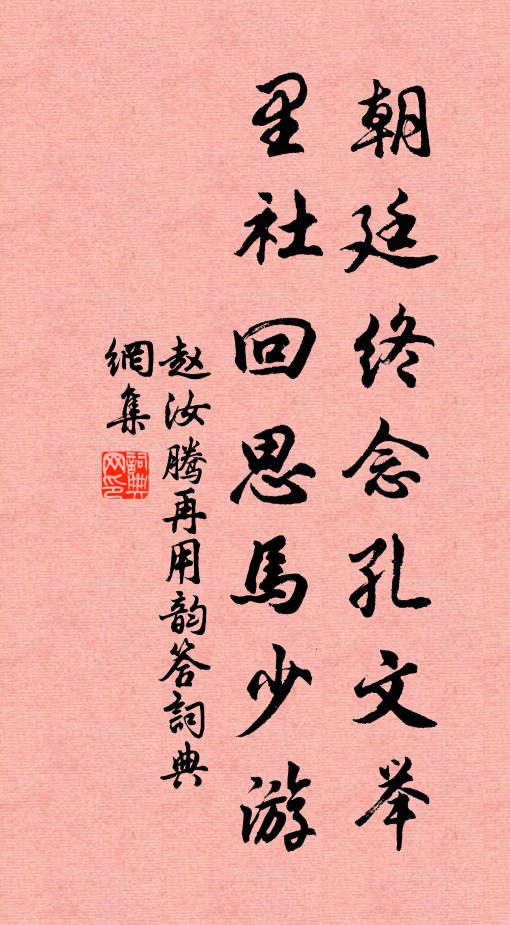 朝廷终念孔文举
里社回思馬少游
赵汝腾再用韵答詞典
網集
詞典网印